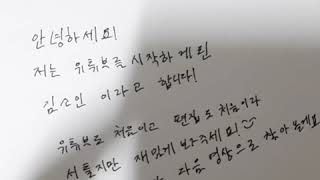 안녕하세요!
저는 유튜브를 시작하게된
김소인 이라고 합니다!
유튜브도 처음이고 편집도 처음이라
서툴지만 재밌게 봐주세요!
다음 영상으로 찾아뵐게요